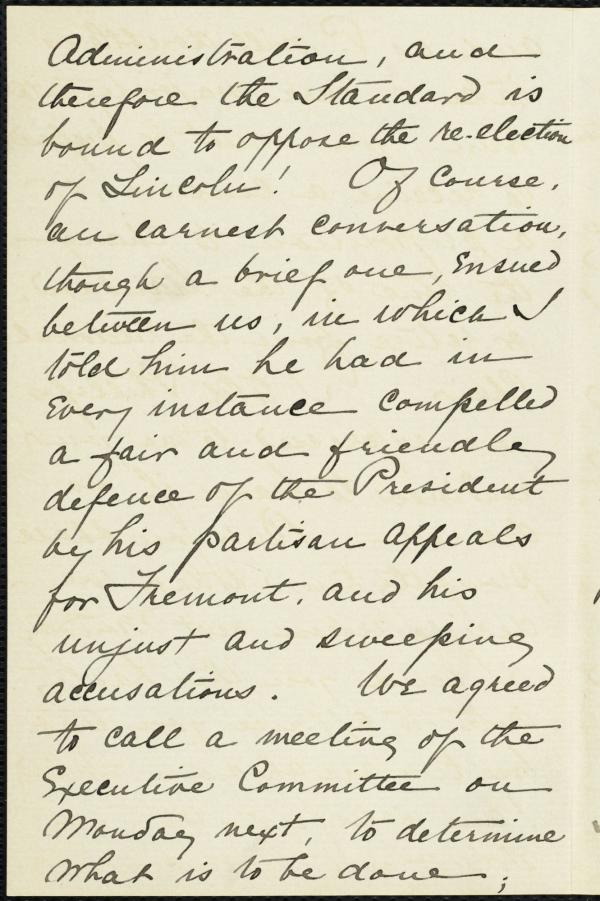 Administration, and
therefore the Standard is
bound to oppose the re-election
of Lincoln! Of course,
an earnest conversation,
though a brief one, ensued
between us, in which I
told him he had in
every instance compelled
a fair and friendly
defence of the President
by his partisan appeals
for Fremont, and his
unjust and sweeping
accusations. We agreed
to call a meeting of the
Executive Committee on
Monday next, to determine
what is to be done;